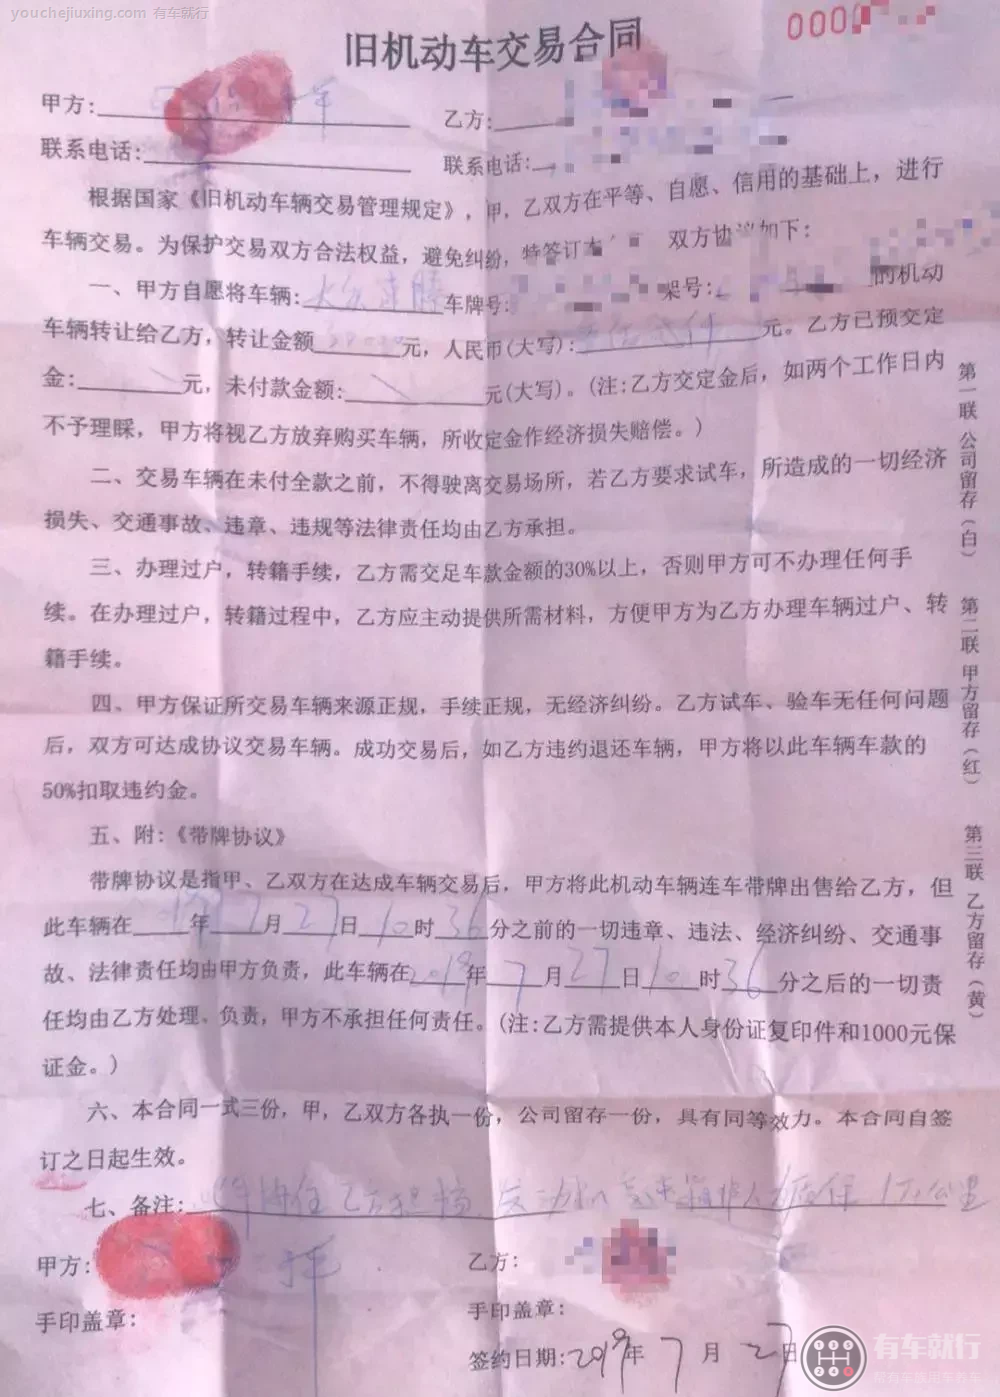 youchejiuxing.com 有车就行
000
旧机动车交易合同
甲方: 乙方:
联系电话: 联系电话:
根据国家《旧机动车辆交易管理规定》,甲,乙双方在平等、自愿、信用的基础上,进行
车辆交易。为保护交易双方合法权益,避免纠纷,特签订 双方协议如下:
一、甲方自愿将车辆:大众速腾 车牌号: 架号: 的机动
车辆转让给乙方,转让金额 元,人民币(大写): 元。乙方已预交定
金: 元,未付款金额: 元(大写)。(注:乙方交定金后,如两个工作日内
不予理睬,甲方将视乙方放弃购买车辆,所收定金作经济损失赔偿。)
二、交易车辆在未付全款之前,不得驶离交易场所,若乙方要求试车,所造成的一切经济
损失、交通事故、违章、违规等法律责任均由乙方承担。
三、办理过户,转籍手续,乙方需交足车款金额的30%以上,否则甲方可不办理任何手
续。在办理过户,转籍过程中,乙方应主动提供所需材料,方便甲方为乙方办理车辆过户、转
籍手续。
四、甲方保证所交易车辆来源正规,手续正规,无经济纠纷。乙方试车、验车无任何问题
后,双方可达成协议交易车辆。成功交易后,如乙方违约退还车辆,甲方将以此车辆车款的
50%扣取违约金。
五、附:《带牌协议》
带牌协议是指甲、乙双方在达成车辆交易后,甲方将此机动车辆连车带牌出售给乙方,但
此车辆在19年7月27日10时36分之前的一切违章、违法、经济纠纷、交通事
故、法律责任均由甲方负责,此车辆在2019年7月27日10时36分之后的一切责
任均由乙方处理、负责,甲方不承担任何责任。(注:乙方需提供本人身份证复印件和1000元保
证金。)
六、本合同一式三份,甲,乙双方各执一份,公司留存一份,具有同等效力。本合同自签
订之日起生效。
七、备注: 乙方担 发动机 质保1万公里
甲方: 乙方:
手印盖章: 手印盖章:
签约日期:2019年7月27日
第一联 公司留存(白)
第二联 甲方留存(红)
第三联 乙方留存(黄)
有车就行